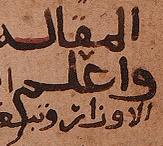 المقاله
واعلم ا
الاوزان وتبر